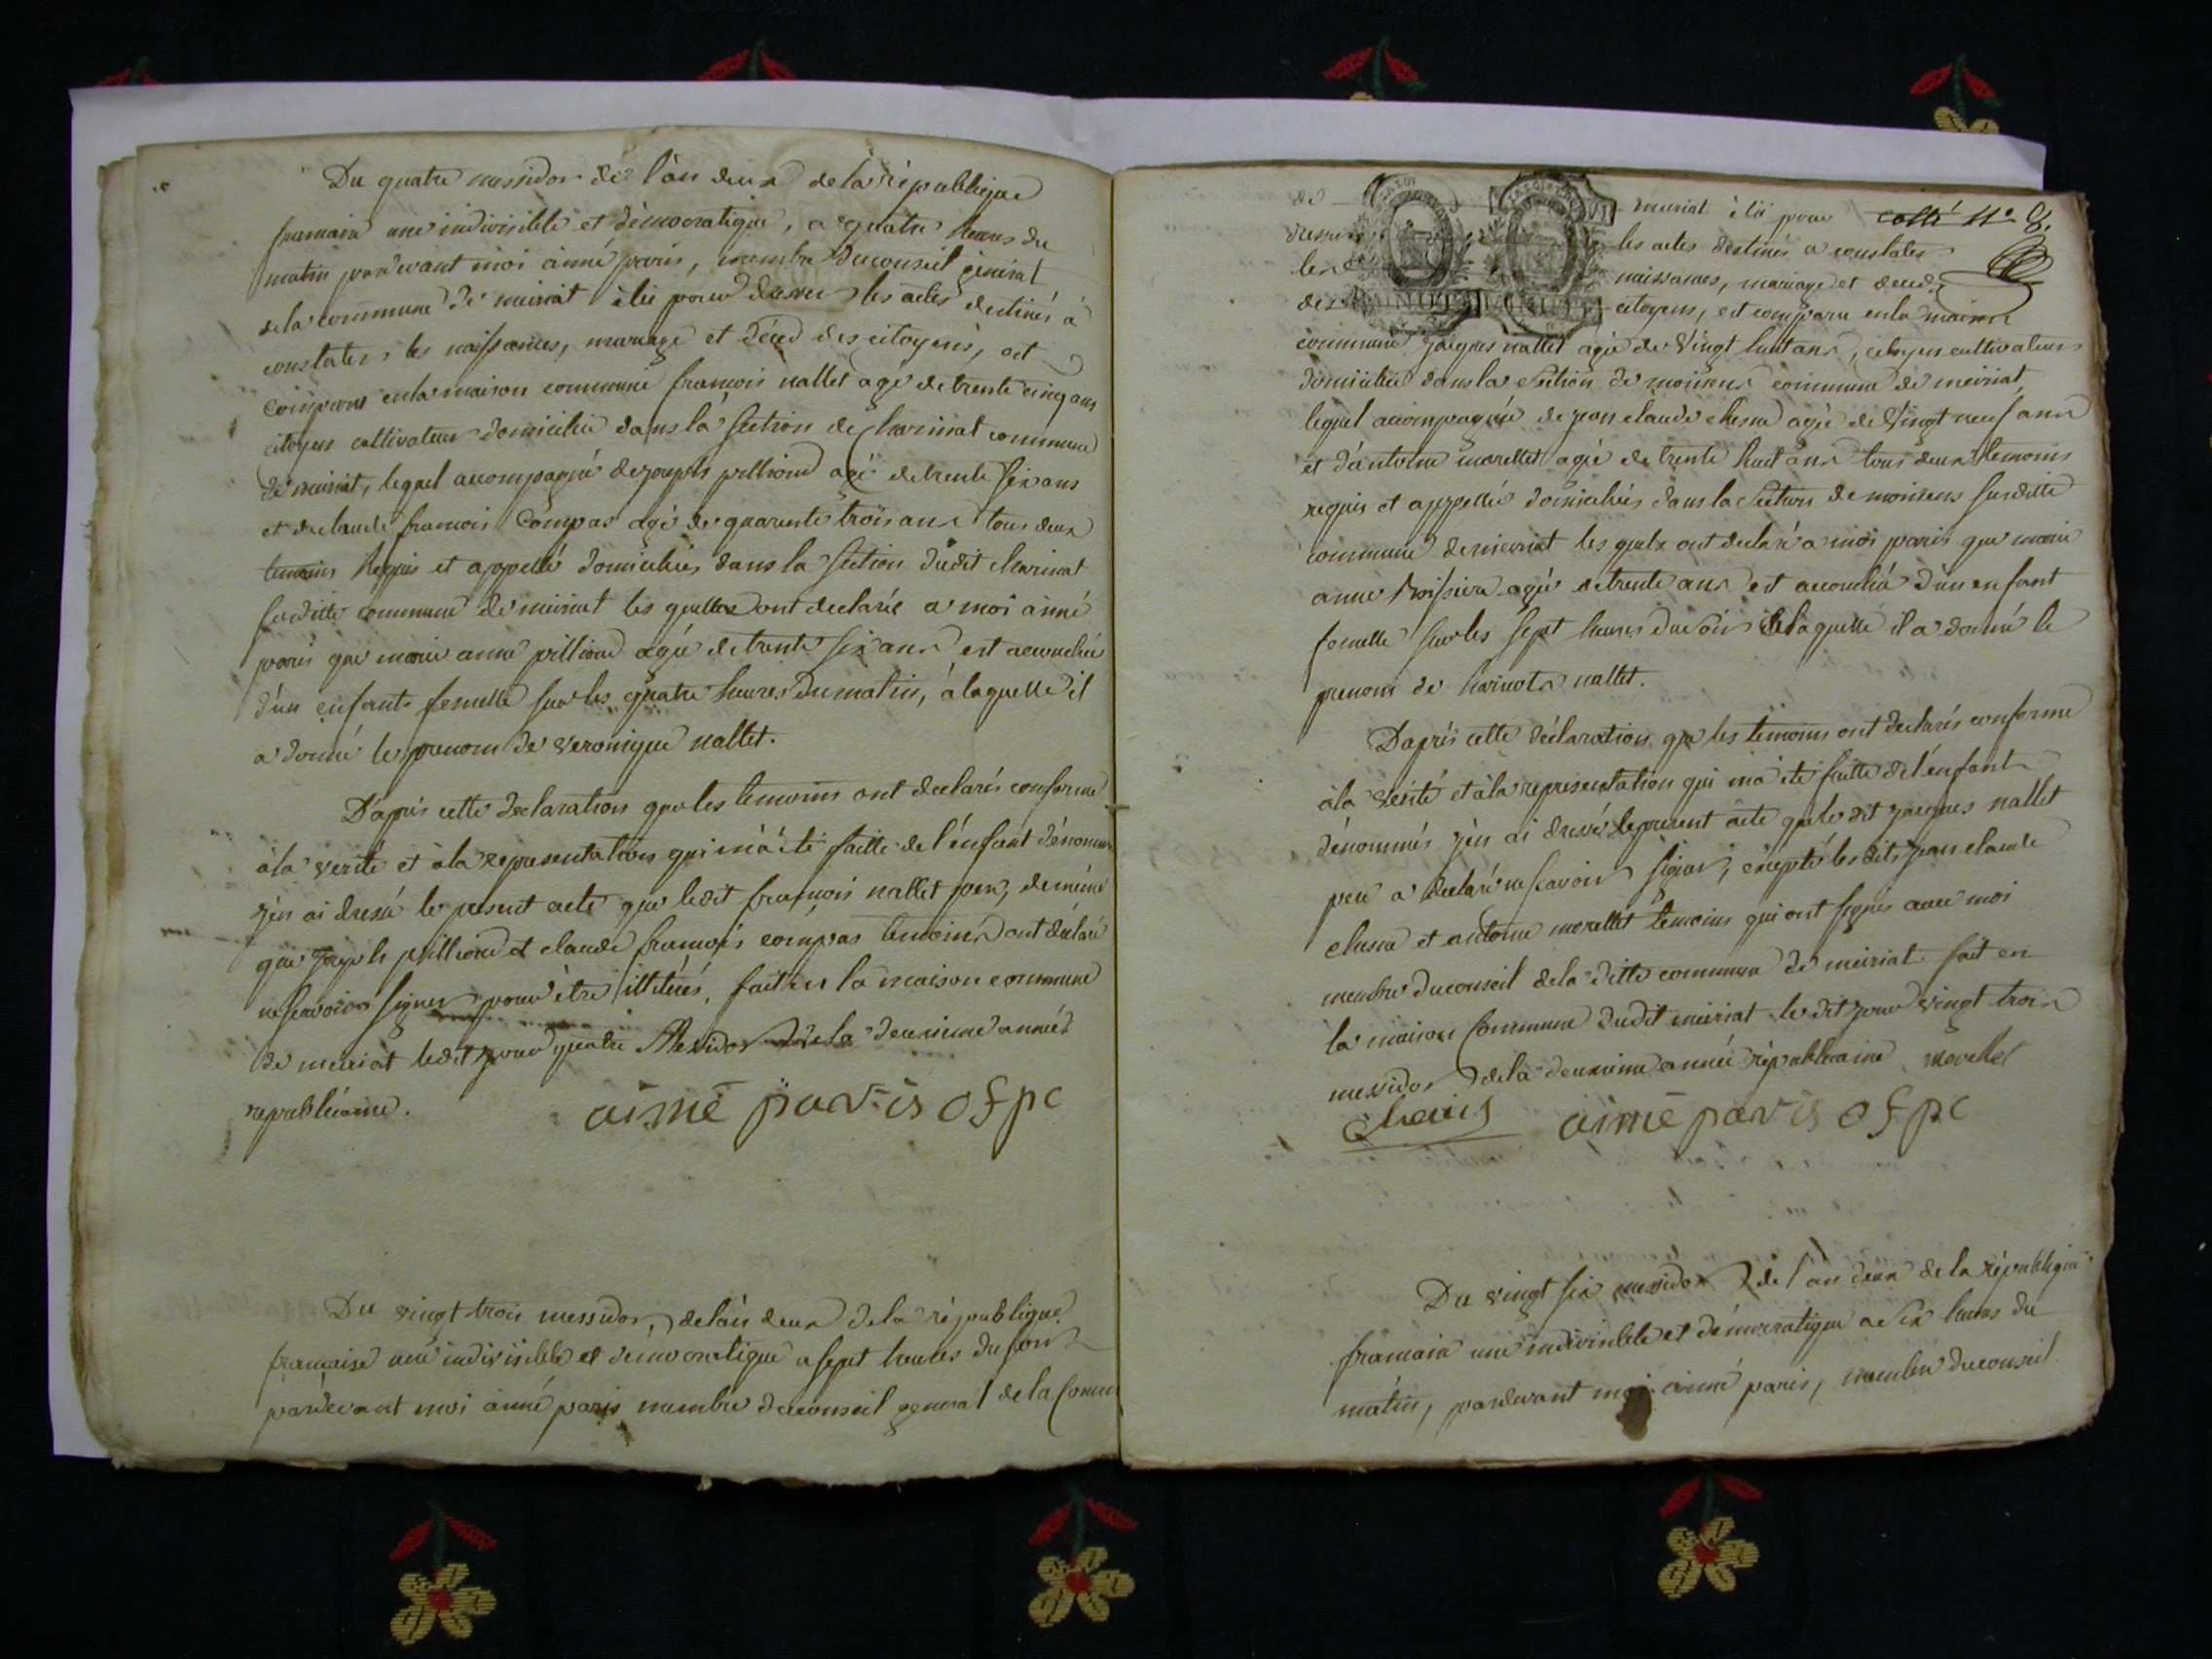 Du quatre messidor de l'an deux de la république
francaise une indivisible et démocratique, a quatre heures du
matin pardevant moi aimé paris, membre du conseil général
de la commune de meiriat élu pour dresser les actes destinés à
constater les naissances, mariage et décès des citoyens, est
comparu en la maison commune francois nallet agé de trente cinq ans
citoyen cultivateur domicilié dans la section de charinat commune
de meiriat, lequel accompagné de joseph pillioud agé de trente six ans
et de claude francois Compas agé de quarante trois ans tous deux
temoins requis et appellé domiciliés dans la section dudit charinat
susditte commune de meiriat les quelles ont declaré a moi aimé
paris que marie anne pillioud agée de trente six ans est accouchée
d'un enfant femelle sur les quatre heures du matin, à laquelle il
a donné le prenom de veronique nallet.
D'après cette declaration que les temoins ont declarés conforme
à la verité et à la representation qui m'a été faitte de l'enfant dénommé
j'en ai dressé le present acte que ledit françois nallet pere, de même
que joseph pillioud et claude françois compas temoins ont déclaré
ne scavoir signer pour être illiterés, fait en la maison commune
de meiriat ledit jour quatre Messidor de la deuxieme année
republicaine.
aimé paris of pc
Du vingt trois messidor, de l'an deux de la république
francaise une indivisible et democratique a sept heures du soir
pardevant moi aimé paris membre du conseil general de la commune
de meiriat élu pour cotté n° 8.
dresser les actes destinés a constater
les naissances, mariage et decès
des citoyens, est comparu en la maison
commune jacques nallet agé de vingt huit ans, citoyen cultivateur
domicilié dans la section de moinens commune de meiriat
lequel accompagnée de jean claude chesne agé de vingt neuf ans
et d'antoine morellet agé de trente huit ans tous deux temoins
requis et appellé domiciliés dans la section de moinens susditte
commune de meiriat les quels ont declaré a moi paris que marie
anne agé de trente ans est accouchée d'un enfant
femelle sur les sept heures du soir à laquelle il a donné le
prenom de nallet.
D'après cette déclaration que les temoins ont declarés conforme
à la verité et à la representation qui ma été faitte de l'enfant
dénommés j'en ai dressé le present acte que le dit jacques nallet
pere a declaré ne scavoir signer, excepté les dits jean claude
chesne et antoine morellet temoins qui ont signés avec moi
membre du conseil de la ditte commune de meiriat fait en
la maison commune dudit meiriat le dit jour vingt trois
messidor de la deuxieme année républicaine morellet
aimé paris of pc
Du vingt six messidor de l'an deux de la république
francaise une indivisible et démocratique a six heures du
matin, pardevant moi aimé paris, membre du conseil